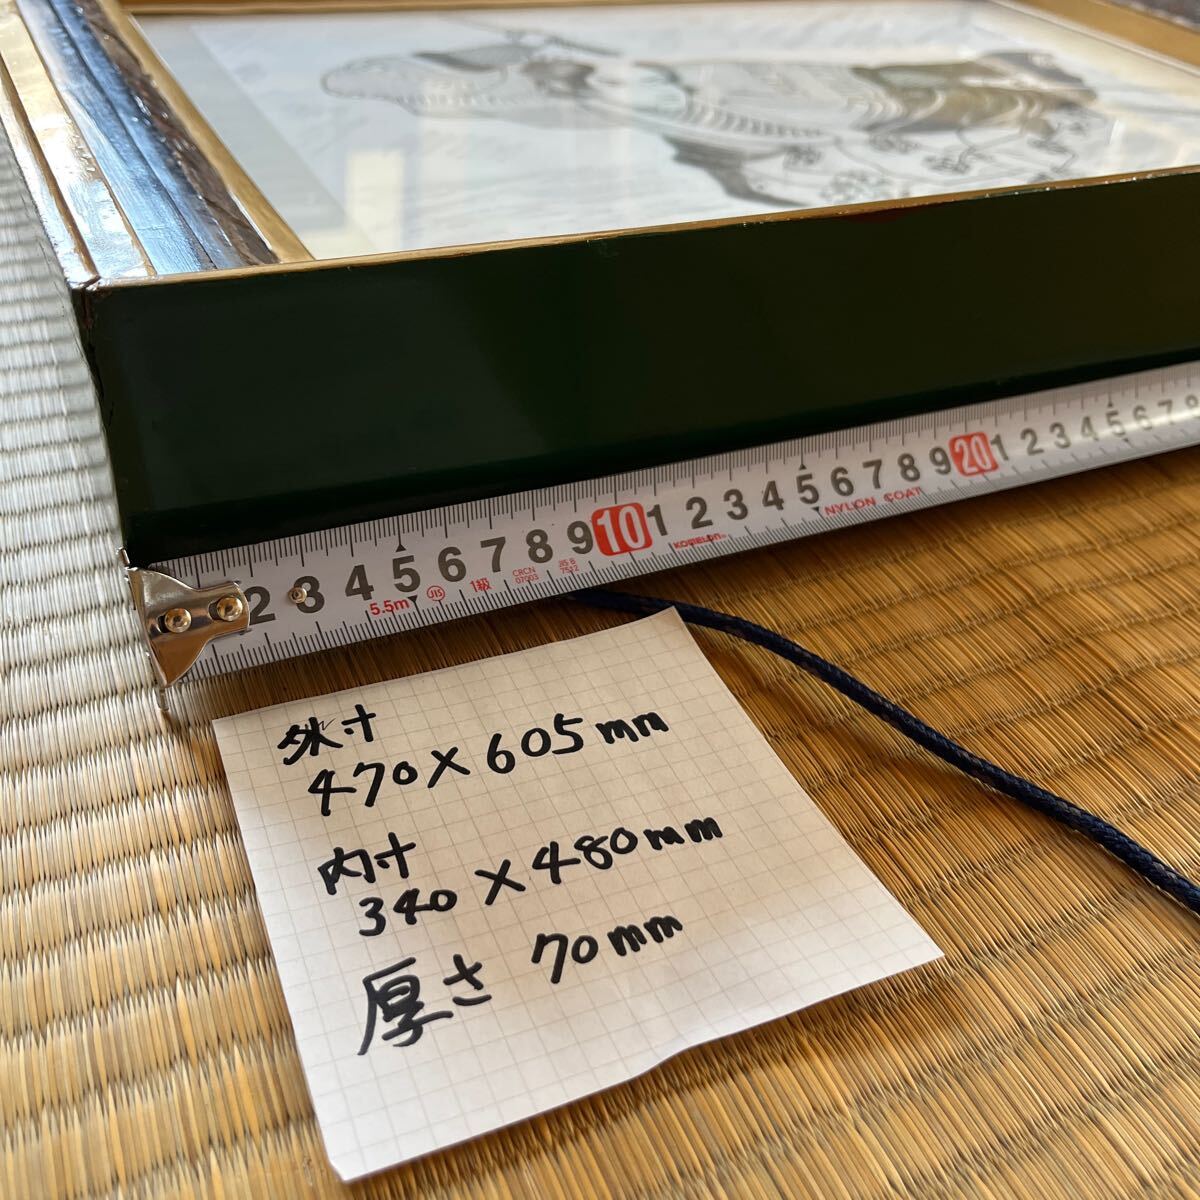 2 3 4 5 6 7 8 9 10 1 2 3 4 5 6 7 8 9 20 1 2 3 4 5 6 7 8
5.5m JIS 1級 CRCN 07003 JIS B 7512 KOMELON NYLON COAT
外寸
470×605mm
内寸
340×480mm
厚さ 70mm